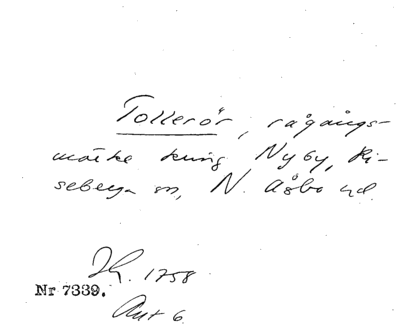 Tollerör, rågångs-
märke kring Nyby, Ri-
seberga sn, N. Åsbo hd.
1758
Nr 7339.
Akt 6